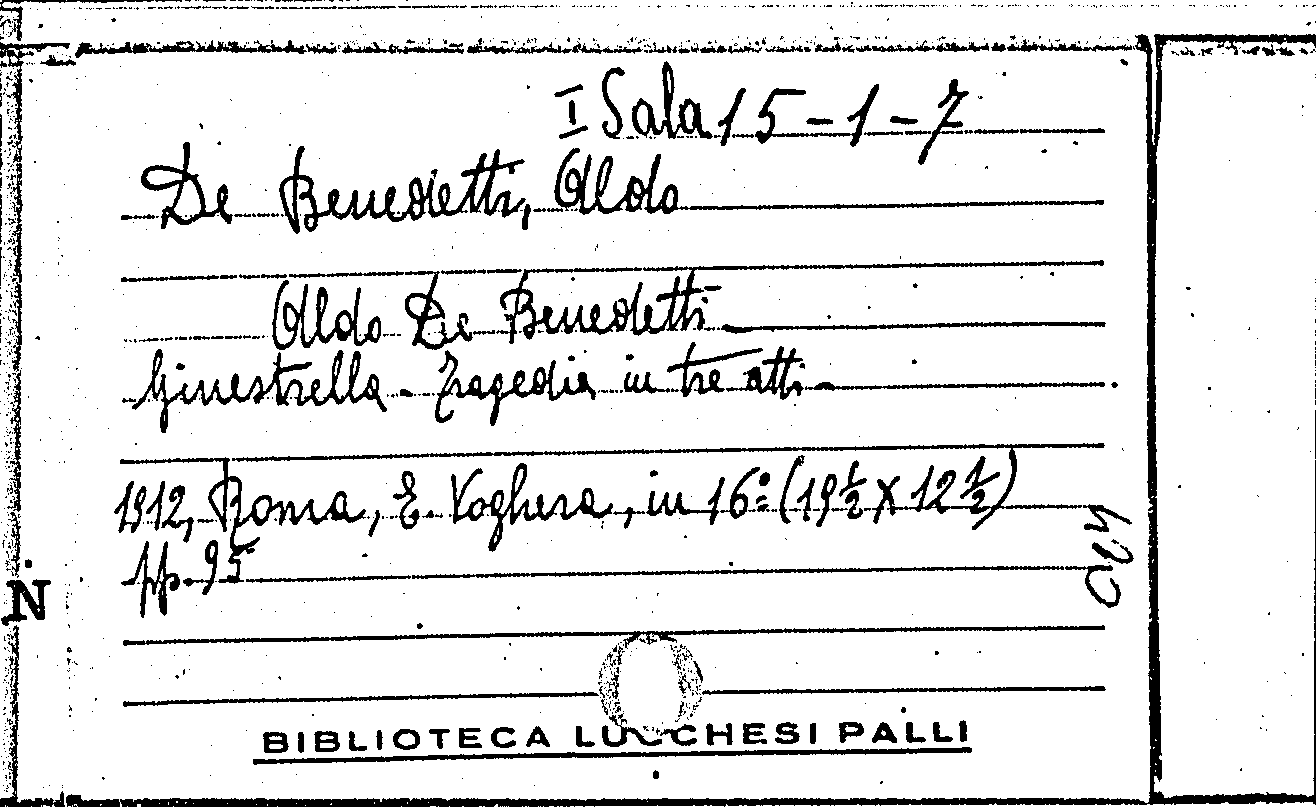 I Sala 15-1-7
De Benedetti, Aldo
Aldo De Benedetti —
Ginestrella - Tragedia in tre atti -
1912, Roma, E. Voghera, in 16º (19½ x 12½)
pp. 95
N
BIBLIOTECA LUCCHESI PALLI